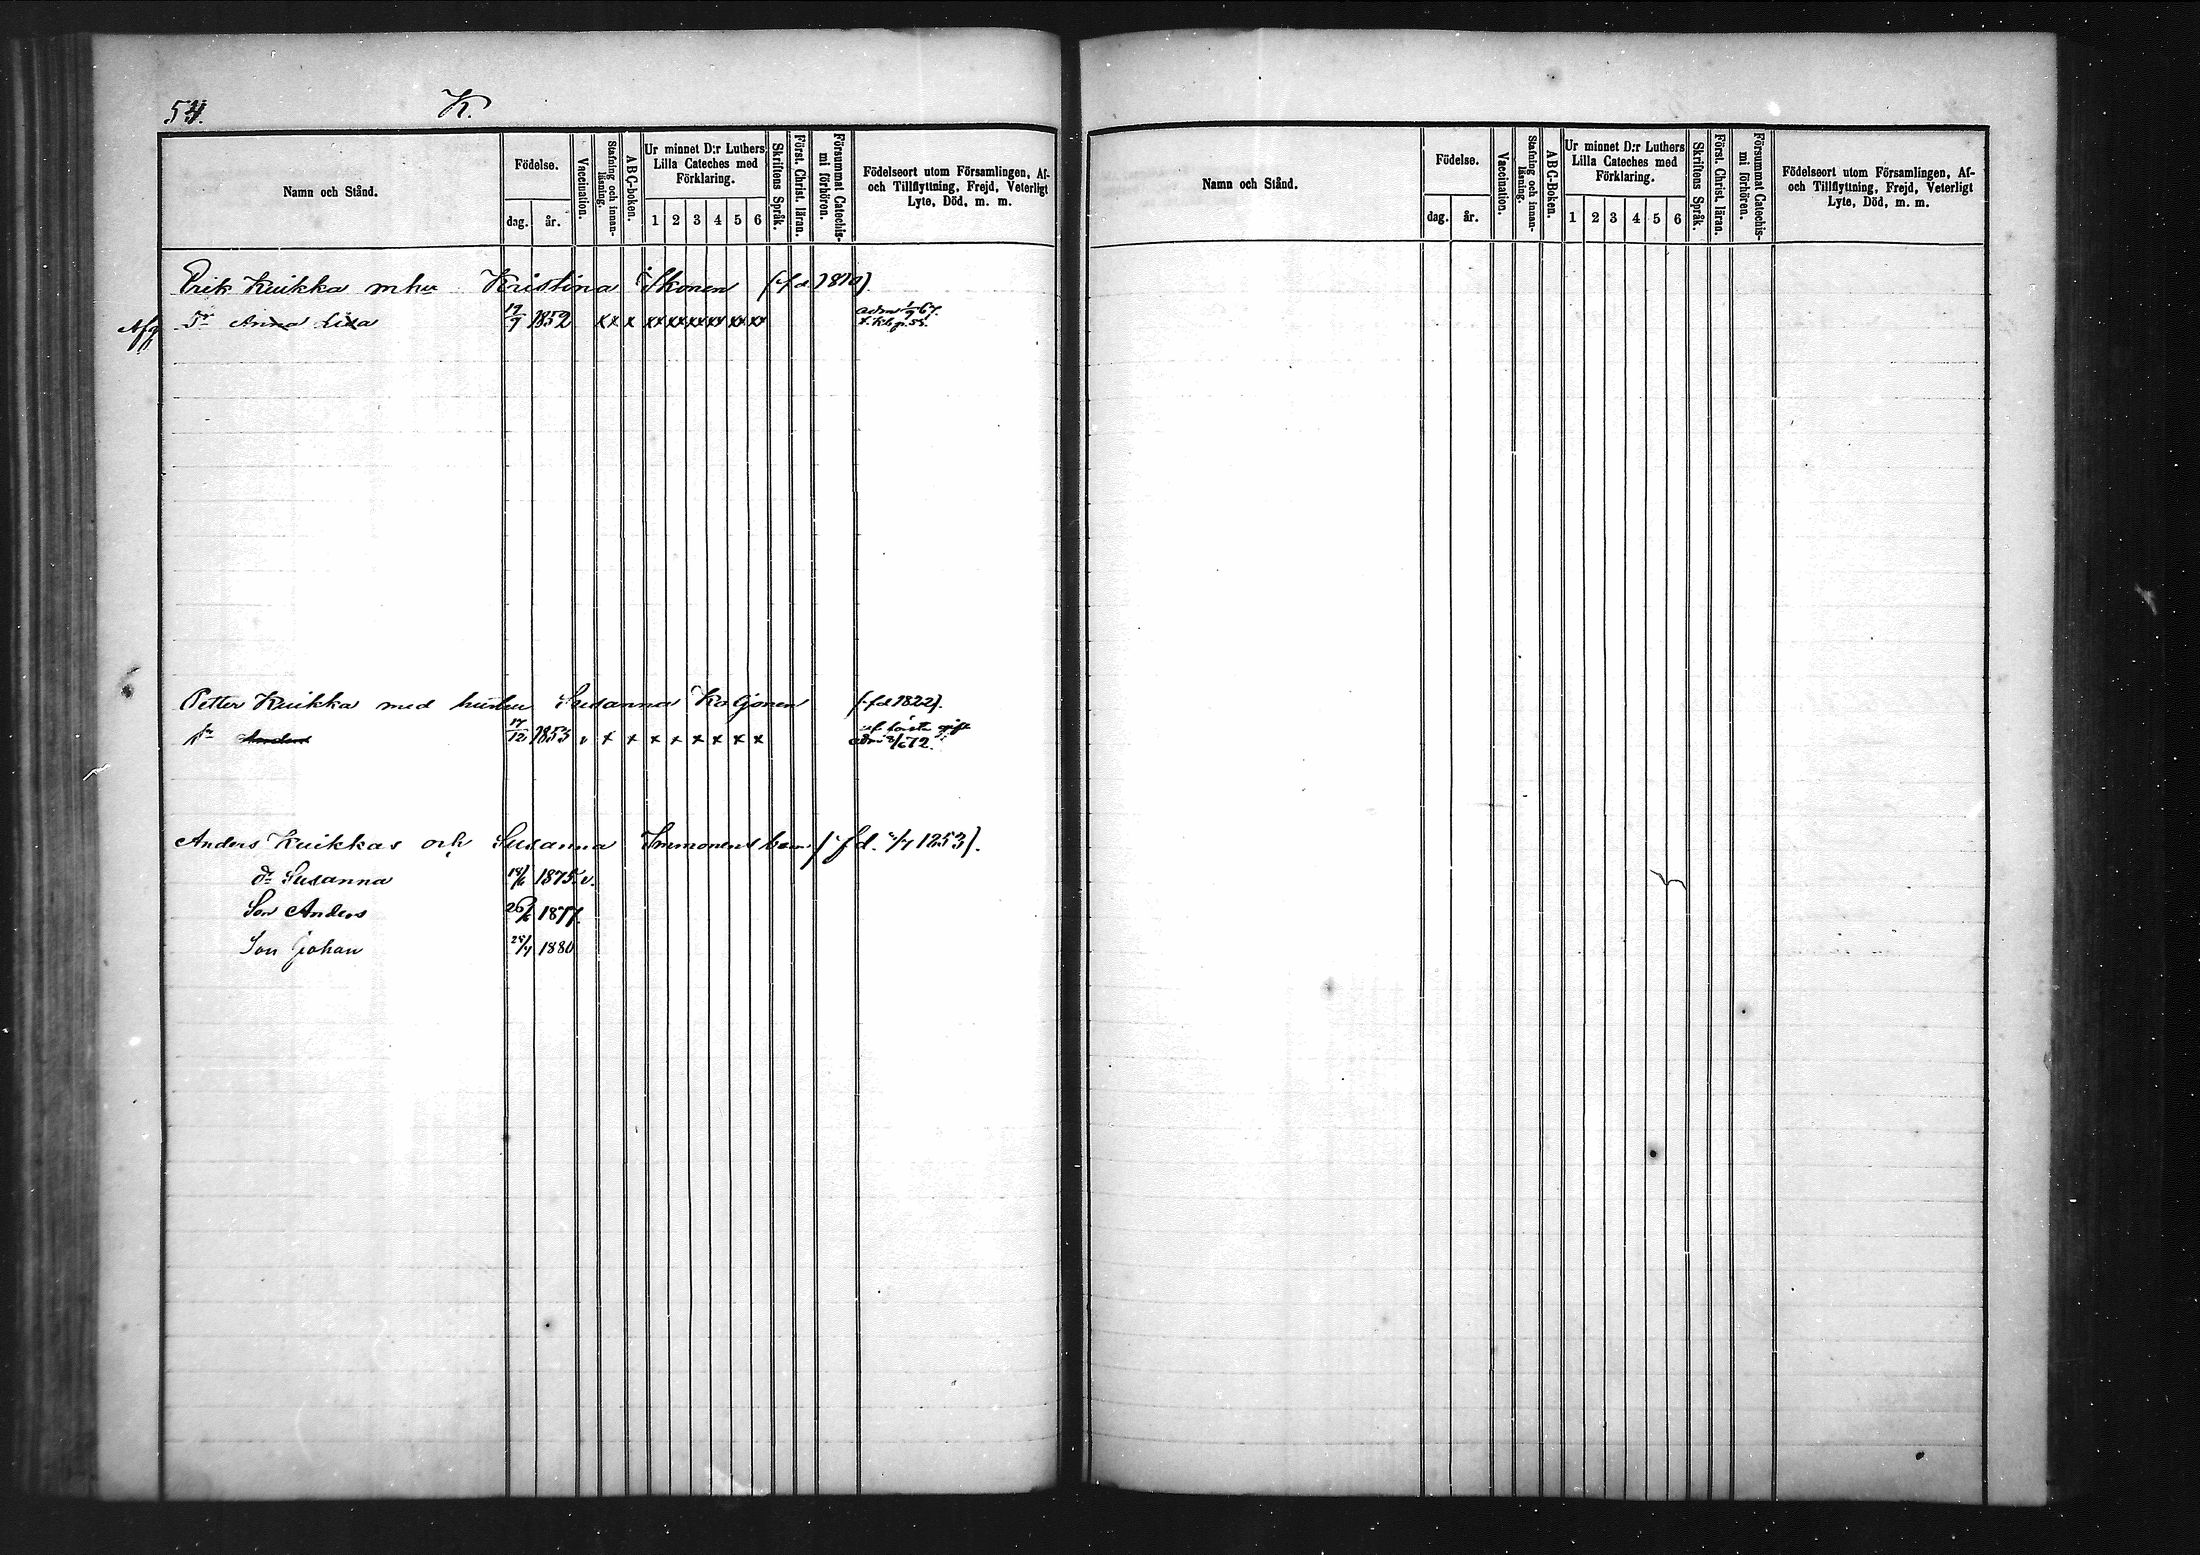 54. K.
Namn och Stånd. Födelse. dag. år. Vaccination. Stafning och innanläsning. ABC-boken. Ur minnet D:r Luthers Lilla Cateches med Förklaring. 1 2 3 4 5 6 Skriftens Språk. Först. Christ. läran. Försummat Catechismi förhören. Födelseort utom Församlingen, Af- och Tillflyttning, Frejd, Veterligt Lyte, Död, m. m.
Erik Kuikka m hu Kristina Ikonen (fd 1810).
Afg dr Anna Lisa 17/9 1852 xx x xx xx xx xx xx xx adm 1/9 67.
Petter Kuikka med hustru Susanna Koljonen (fd 1822).
Anders 17/12 1853 v x x x x x x x x af första gift
72.
Anders Kuikkas och Susanna Immonens barn (fd. 1853).
dr Susanna 1875. v.
Son Anders 1877.
Son Johan 1880
Namn och Stånd. Födelse. dag. år. Vaccination. Stafning och innanläsning. ABC-Boken. Ur minnet D:r Luthers Lilla Cateches med Förklaring. 1 2 3 4 5 6 Skriftens Språk. Först. Christ. läran. Försummat Catechismi förhören. Födelseort utom Församlingen, Af- och Tillflyttning, Frejd, Veterligt Lyte, Död, m. m.